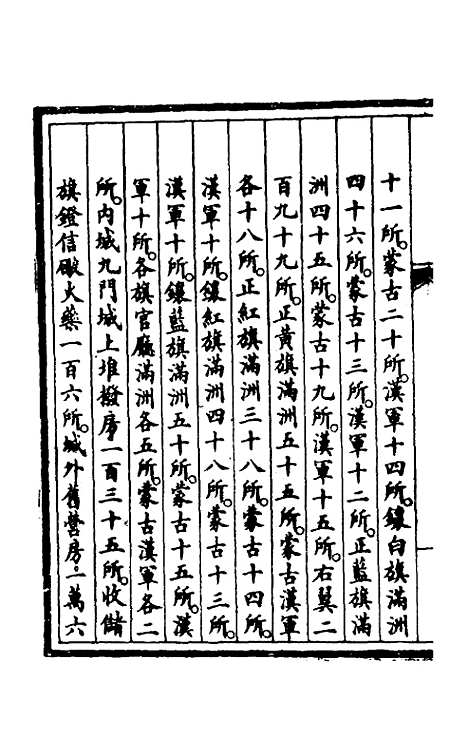 十一所。蒙古二十所。漢軍十四所。鑲白旗滿洲
四十六所。蒙古十三所。漢軍十二所。正藍旗滿
洲四十五所。蒙古十九所。漢軍十五所。右翼二
百九十九所。正黃旗滿洲五十五所。蒙古漢軍
各十八所。正紅旗滿洲三十八所。蒙古十四所。
漢軍十所。鑲紅旗滿洲四十八所。蒙古十三所。
漢軍十所。鑲藍旗滿洲五十所。蒙古十五所。漢
軍十所。各旗官廳滿洲各五所。蒙古漢軍各二
所。內城九門城上堆撥房一百三十五所。收儲
旗鐙信礮火藥一百六所。城外舊營房二萬六